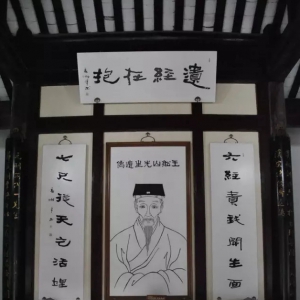 遺經在抱
王船山先生遺像
六經責我開生面
七尺從天乞活埋